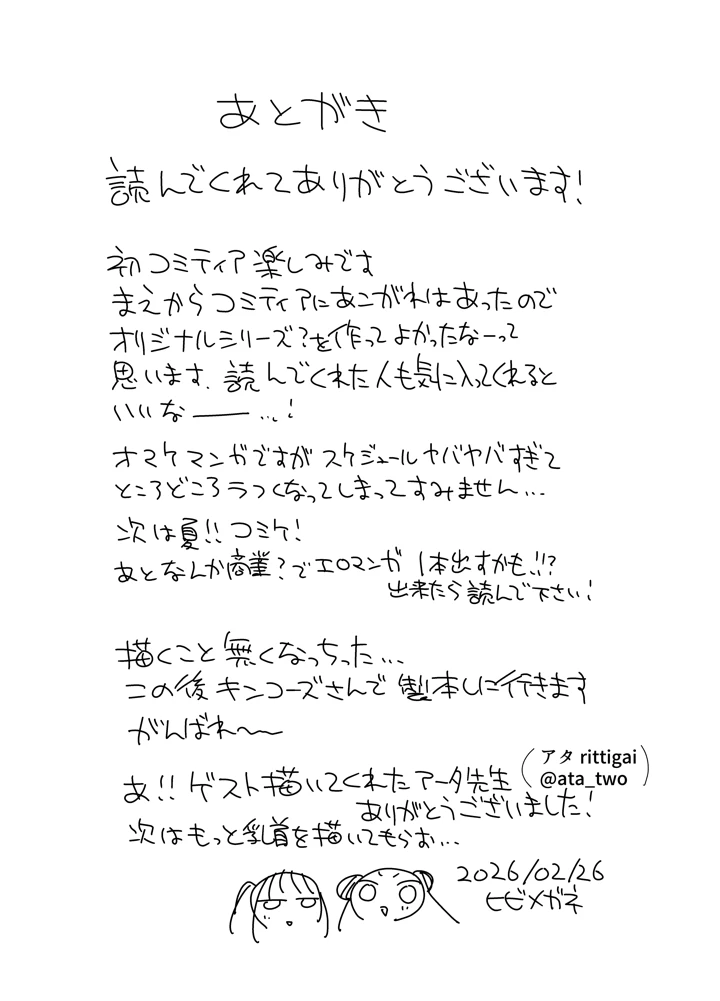 あとがき
読んでくれてありがとうございます!
初コミティア楽しみです
まえからコミティアにあこがれはあったので
オリジナルシリーズ?を作ってよかったなーって
思います. 読んでくれた人も気に入ってくれると
いいな――...!
オマケマンガですがスケジュールヤバヤバすぎて
ところどころラフくなってしまってすみません...
次は夏!!コミケ!
あとなんか商業?でエロマンガ 1本出すかも!!?
出来たら読んで下さい!
描くこと無くなっちった...
この後キンコーズさんで製本しに行きます
がんばれ〜〜
あ!!ゲスト描いてくれたアータ先生
(アタ rittigai
@ata_two)
ありがとうございました!
次はもっと乳首を描いてもらお...
2026/02/26
ヒビメガネ